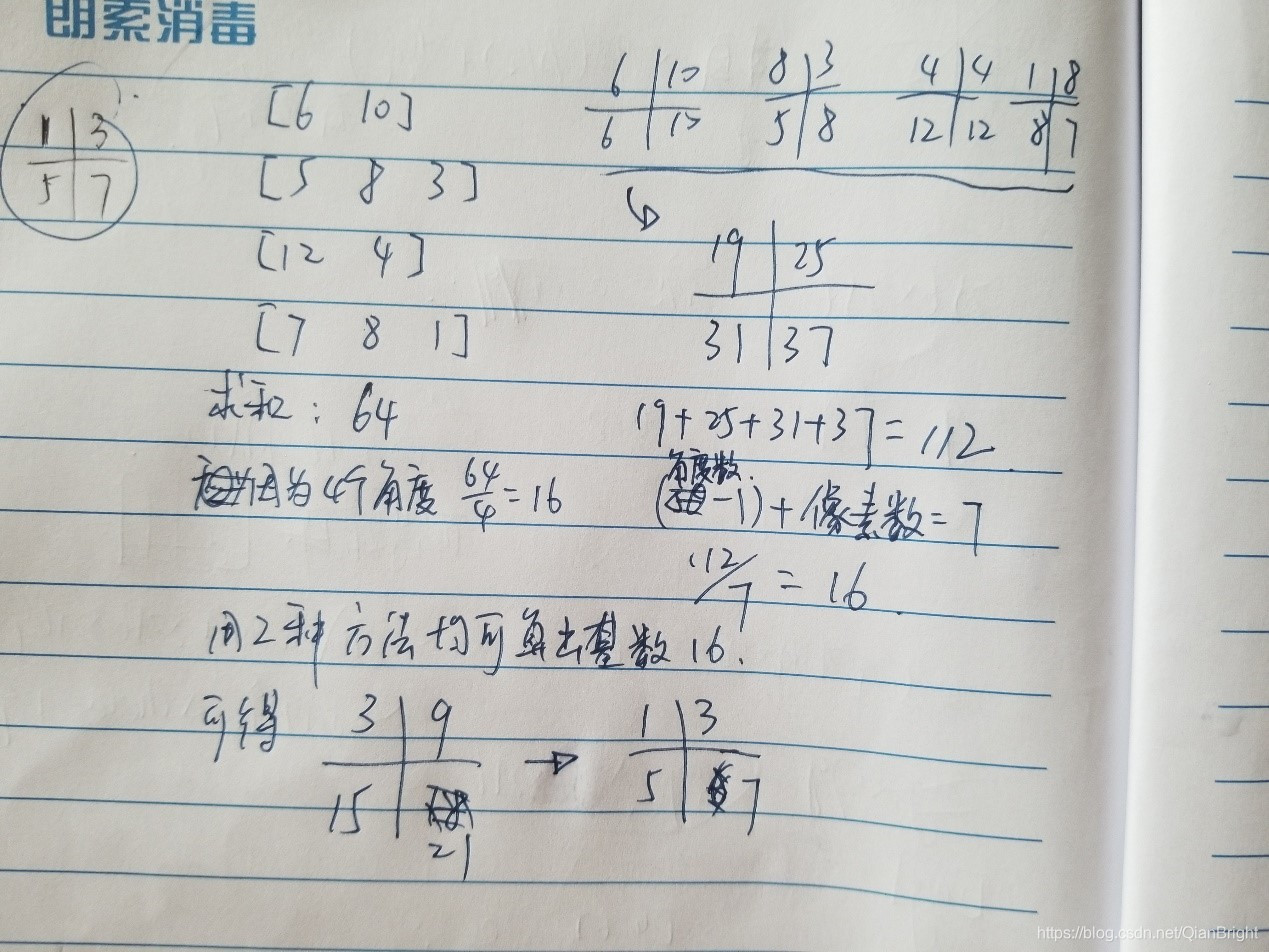 朗索消毒
1 3
5 7
[6 10]
[5 8 3]
[12 4]
[7 8 1]
求和: 64
因为4个角度 64/4 = 16
6 10 8 3 4 4 1 8
6 10 5 8 12 12 8 7
19 25
31 37
19+25+31+37=112
角度数
( -1)+像素数=7
112/7 = 16.
用2种方法均可算出基数16.
可得 3 9 1 3
15 5 7
21
https://blog.csdn.net/QianBright